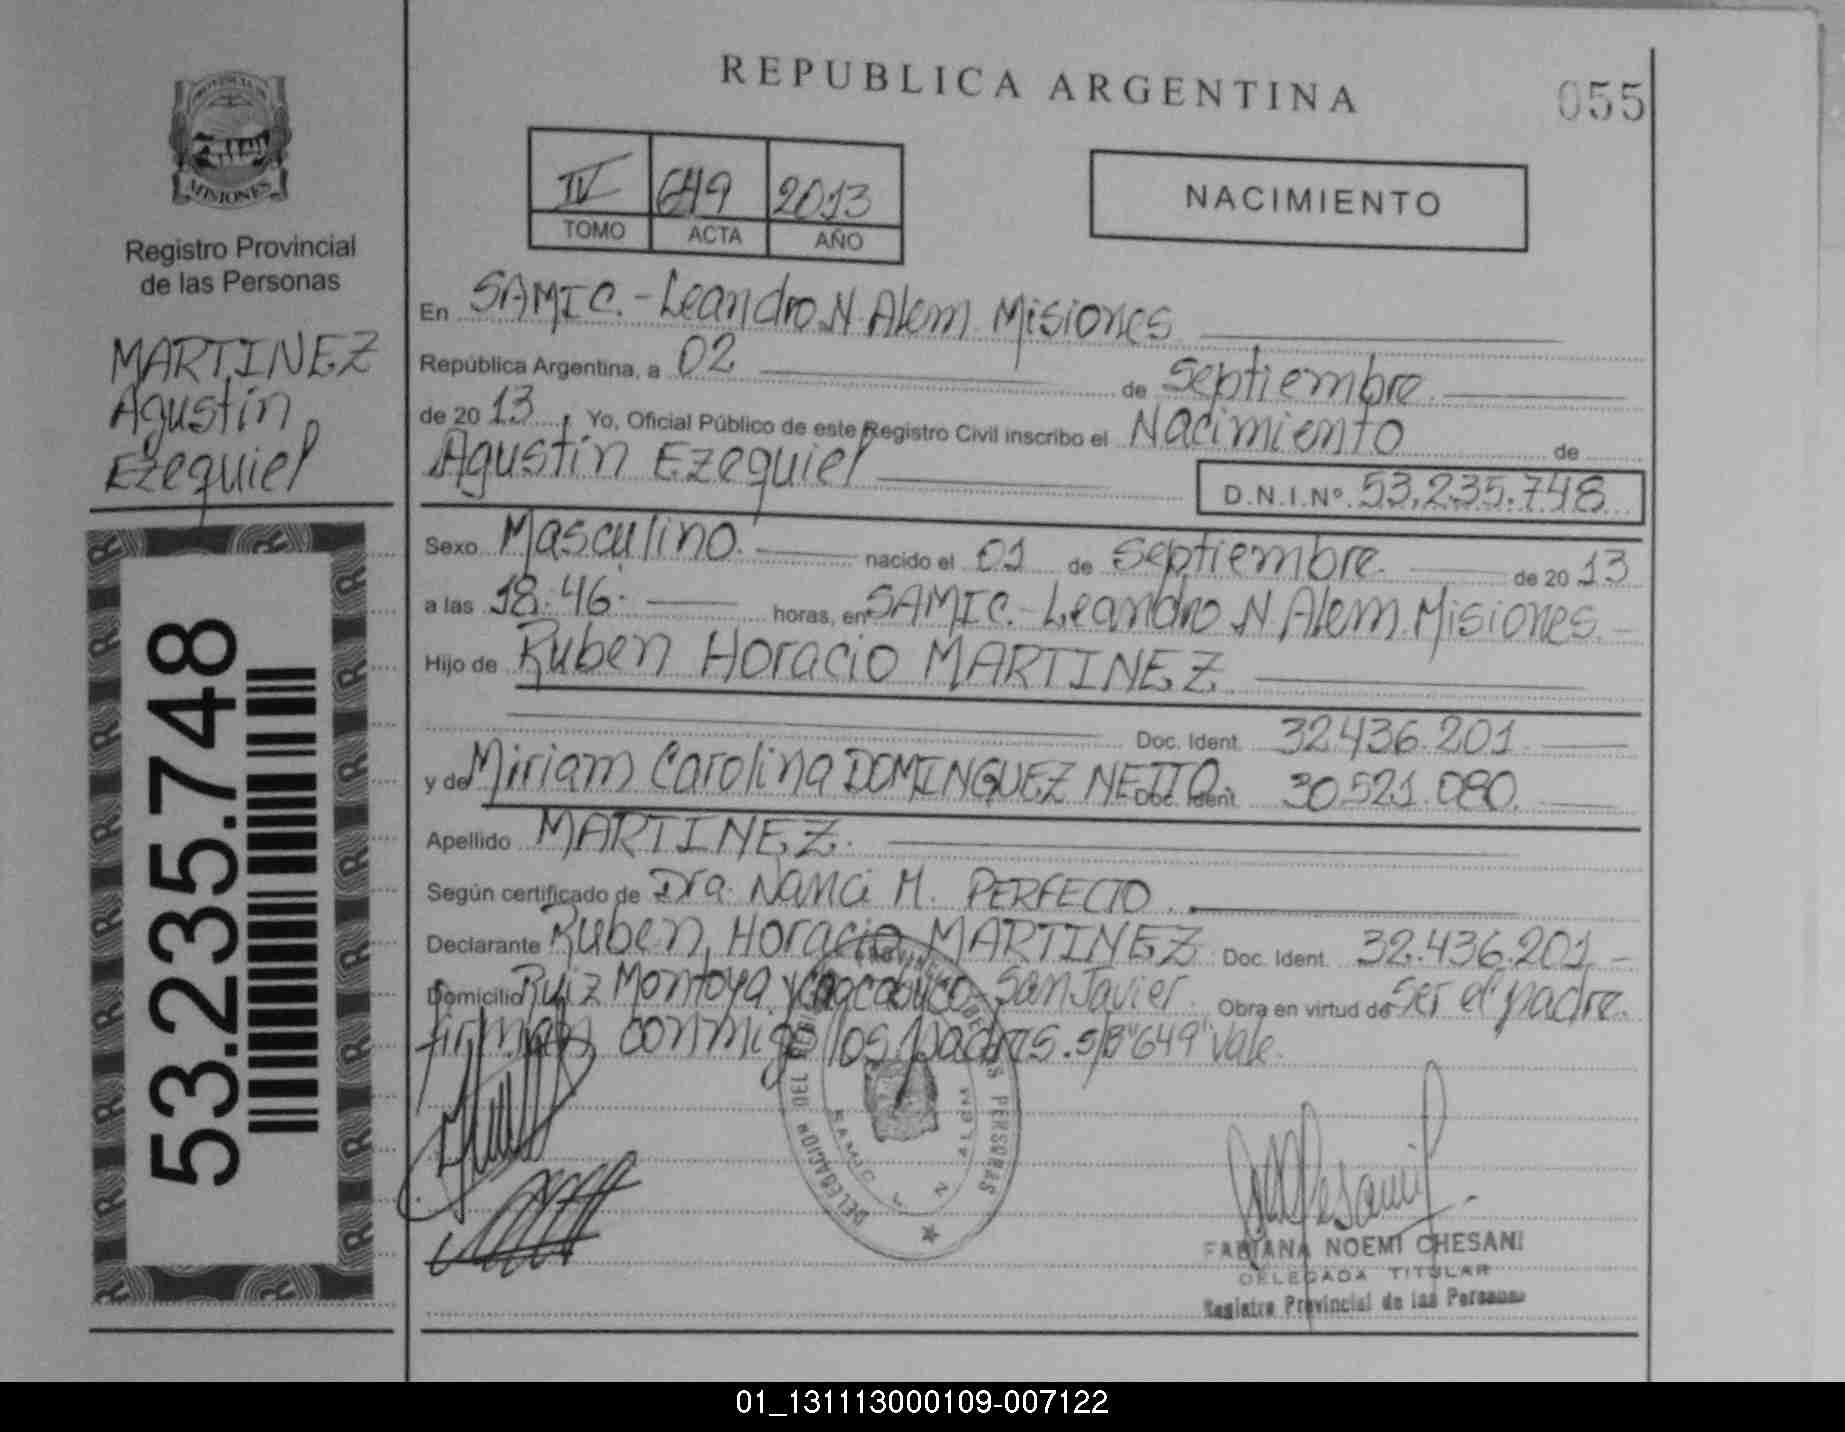 REPUBLICA ARGENTINA
055
PROVINCIA DE
MISIONES
Registro Provincial
de las Personas
MARTINEZ
Agustín
Ezequiel
53.235.748
IV 649 2013
TOMO ACTA AÑO
NACIMIENTO
En SAMIC.-Leandro.N.Alem.Misiones
República Argentina, a 02 de Septiembre.
de 2013. Yo, Oficial Público de este Registro Civil inscribo el Nacimiento de
Agustín Ezequiel D.N.I.Nº. 53.235.748
Sexo Masculino. nacido el 01 de Septiembre. de 2013
a las 18:46. horas, en SAMIC.-Leandro.N.Alem.Misiones.
Hijo de Ruben Horacio MARTINEZ
Doc. Ident. 32.436.201.
y de Miriam Carolina DOMINGUEZ NETTO. Doc. Ident. 30.521.080.
Apellido MARTINEZ.
Según certificado de Dra. Nanci M. PERFECTO.
Declarante Ruben, Horacio MARTINEZ. Doc. Ident. 32.436.201-
Domicilio Ruiz Montoya y Chacabuco San Javier. Obra en virtud de Ser el padre.
firman conmigo los padres.s/B"649"Vale.
DELEGACION
PERSONAS
SAMIC
FABIANA NOEMI CHESANI
DELEGADA TITULAR
Registro Provincial de las Personas
01_131113000109-007122